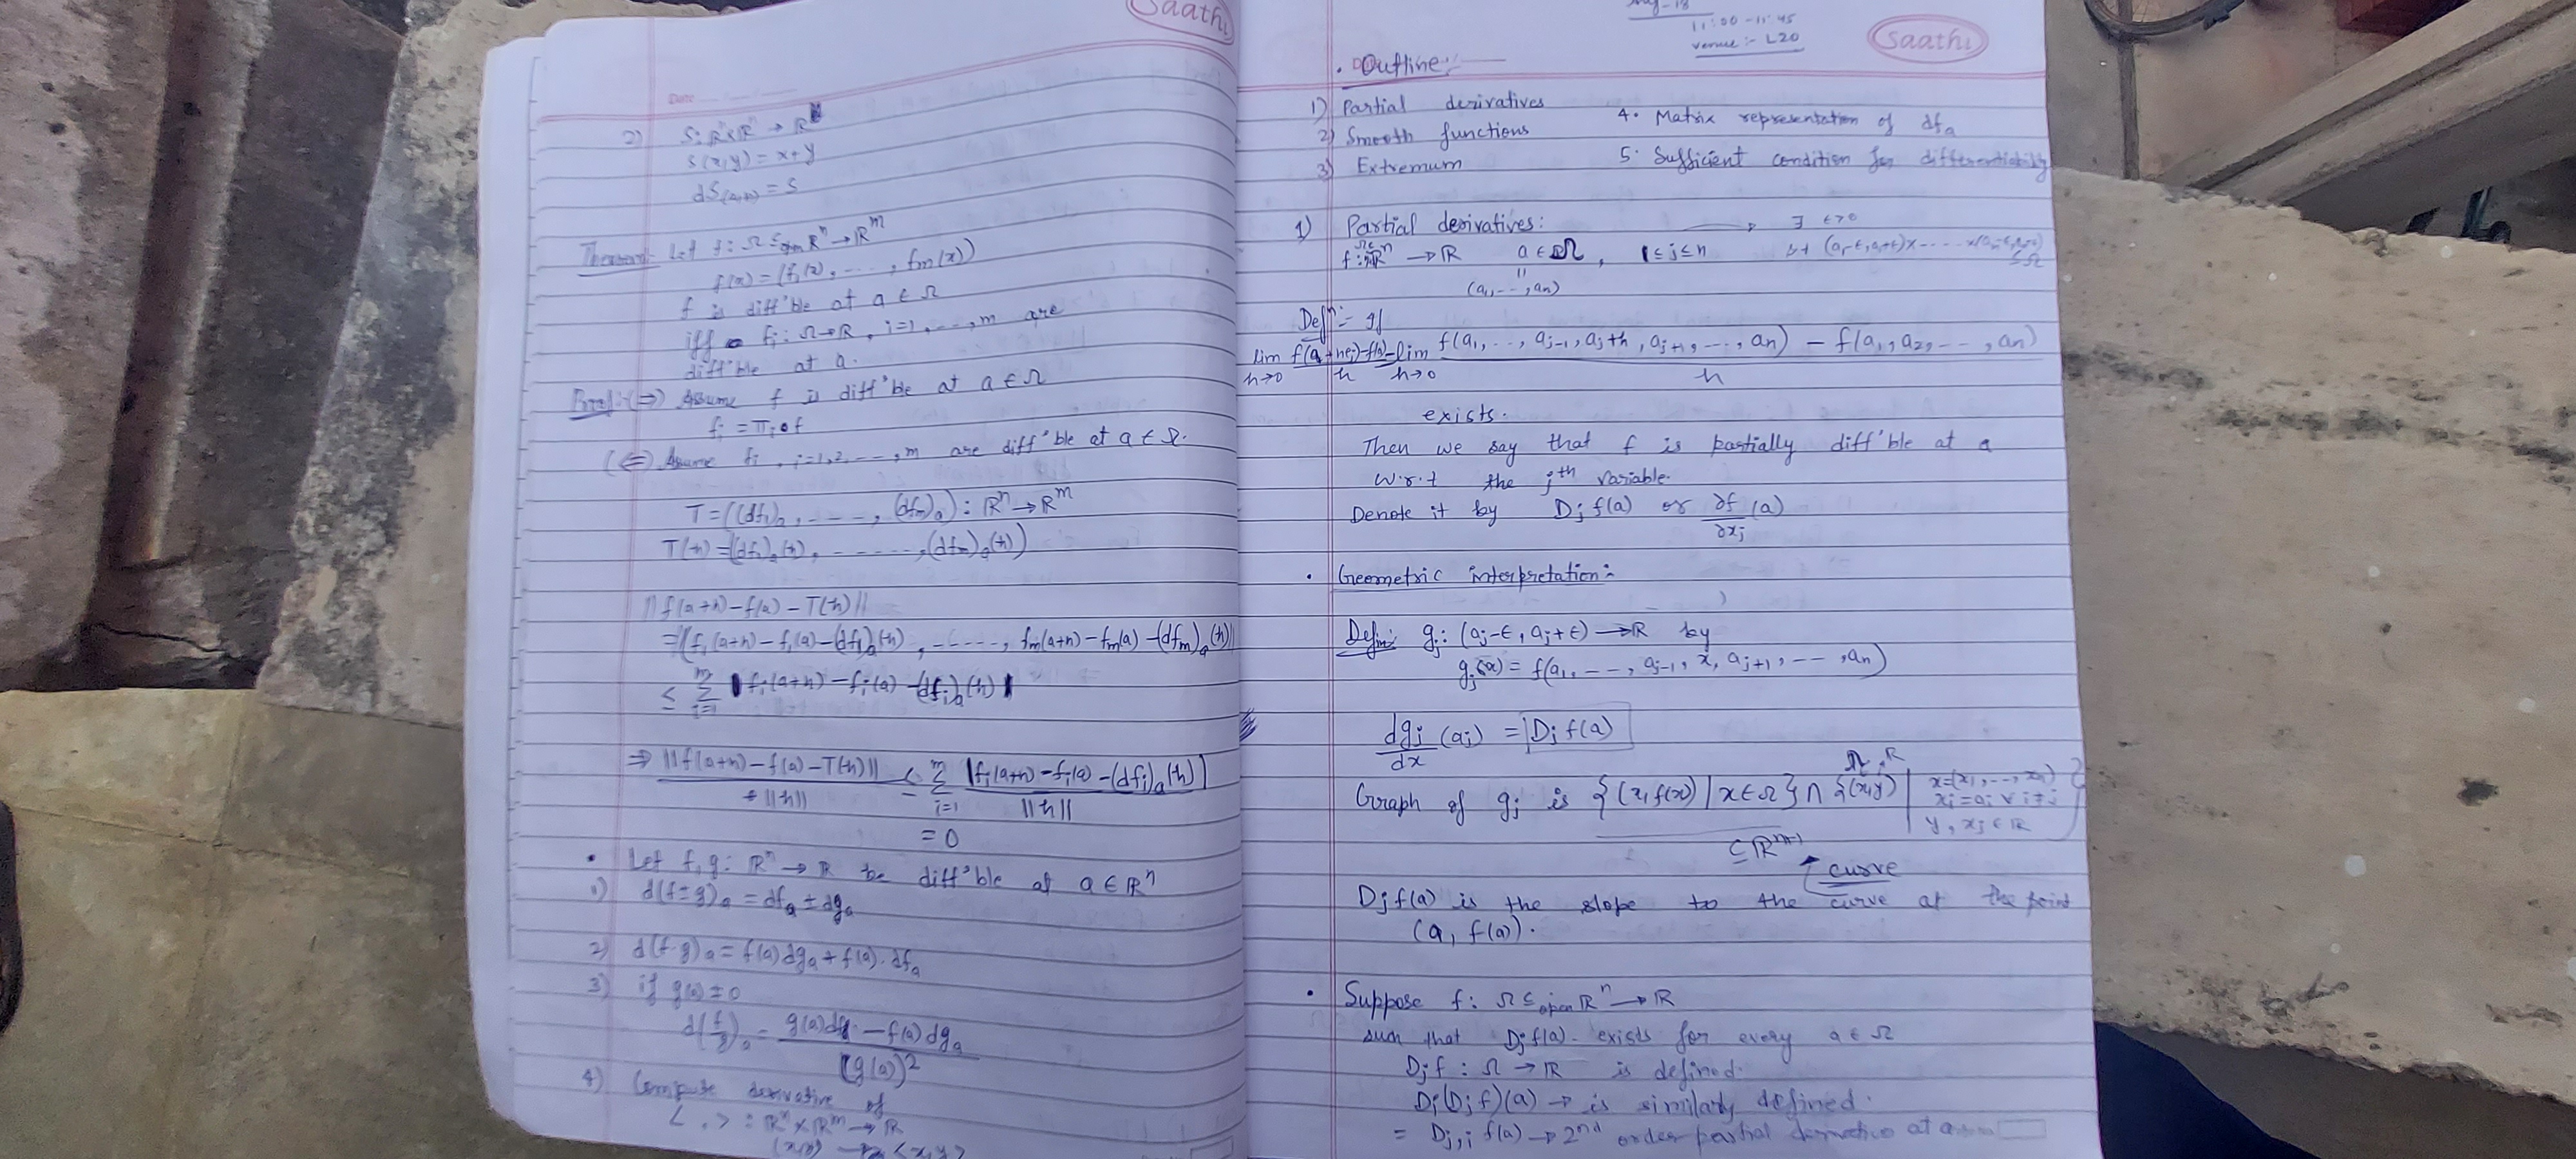 Saathi
Date
2) S: ℝⁿ×ℝⁿ → ℝⁿ
S(x,y) = x+y
dS(a,b) = S
Theorem: Let f: Ω ⊆open ℝⁿ → ℝᵐ
f(x) = (f₁(x), ...., fm(x))
f is diff'ble at a ∈ Ω
iff fi: Ω→ℝ, i=1, ..., m are
diff'ble at a.
Proof:- (⇒) Assume f is diff'ble at a ∈ Ω
fi = πi∘f
(⇐) Assume fi, i=1,2,...,m are diff'ble at a ∈ Ω.
T = ((df₁)a, ...., (dfm)a) : ℝⁿ → ℝᵐ
T(h) = (df₁)a(h), ......, (dfm)a(h))
||f(a+h) - f(a) - T(h)||
= ||(f₁(a+h) - f₁(a) - (df₁)a(h), ....., fm(a+h) - fm(a) - (dfm)a(h)||
≤ Σ i=1 m |fi(a+h) - fi(a) - (dfi)a(h)|
⇒ ||f(a+h) - f(a) - T(h)|| / ||h|| ≤ Σ i=1 m |fi(a+h) - fi(a) - (dfi)a(h)| / ||h||
= 0
• Let f, g: ℝⁿ → ℝ be diff'ble at a ∈ ℝⁿ
1) d(f±g)a = dfa ± dga
2) d(f·g)a = f(a)dga + f(a)·dfa
3) if g(a) ≠ 0
d(f/g)a = g(a)df - f(a)dga / (g(a))²
4) Compute derivative of
< , > : ℝⁿ×ℝᵐ → ℝ
(x,y) → <x,y>
11:00 - 11:45
venue:- L20
Saathi
• Outline:
1) Partial derivatives
2) Smooth functions
3) Extremum
4. Matrix representation of dfa
5. Sufficient condition for differentiability
1) Partial derivatives: → ∃ ε>0
f: Ω ⊆ ℝⁿ → ℝ a ∈ Ω, 1 ≤ j ≤ n s.t (a₁-ε, a₁+ε)×....×(an-ε, an+ε) ⊆ Ω
=
(a₁, ..., an)
Defⁿ:- If
lim h→0 f(a+hej)-f(a) / h = lim h→0 f(a₁, .., aj-1, aj+h, aj+1, ..., an) - f(a₁, a₂, ..., an) / h
exists.
Then we say that f is partially diff'ble at a
w.r.t the jth variable.
Denote it by Dj f(a) or ∂f/∂xj (a)
• Geometric interpretation:-
Define: gj: (aj-ε, aj+ε) → ℝ by
gj(x) = f(a₁, ..., aj-1, x, aj+1, ..., an)
dgj/dx (aj) = Dj f(a)
Graph of gj is {(x, f(x)) | x ∈ Ω} ∩ {(x,y) | x=(x₁, ..., xn)
xi = ai ∀ i≠j
y, xj ∈ ℝ}
⊆ ℝⁿ⁺¹
curve
Dj f(a) is the slope to the curve at the point
(a, f(a)).
• Suppose f: Ω ⊆open ℝⁿ → ℝ
such that Dj f(a) exists for every a ∈ Ω
Dj f : Ω → ℝ is defined.
Di(Dj f)(a) → is similarly defined.
= Dj,i f(a) → 2nd order partial derivative at a